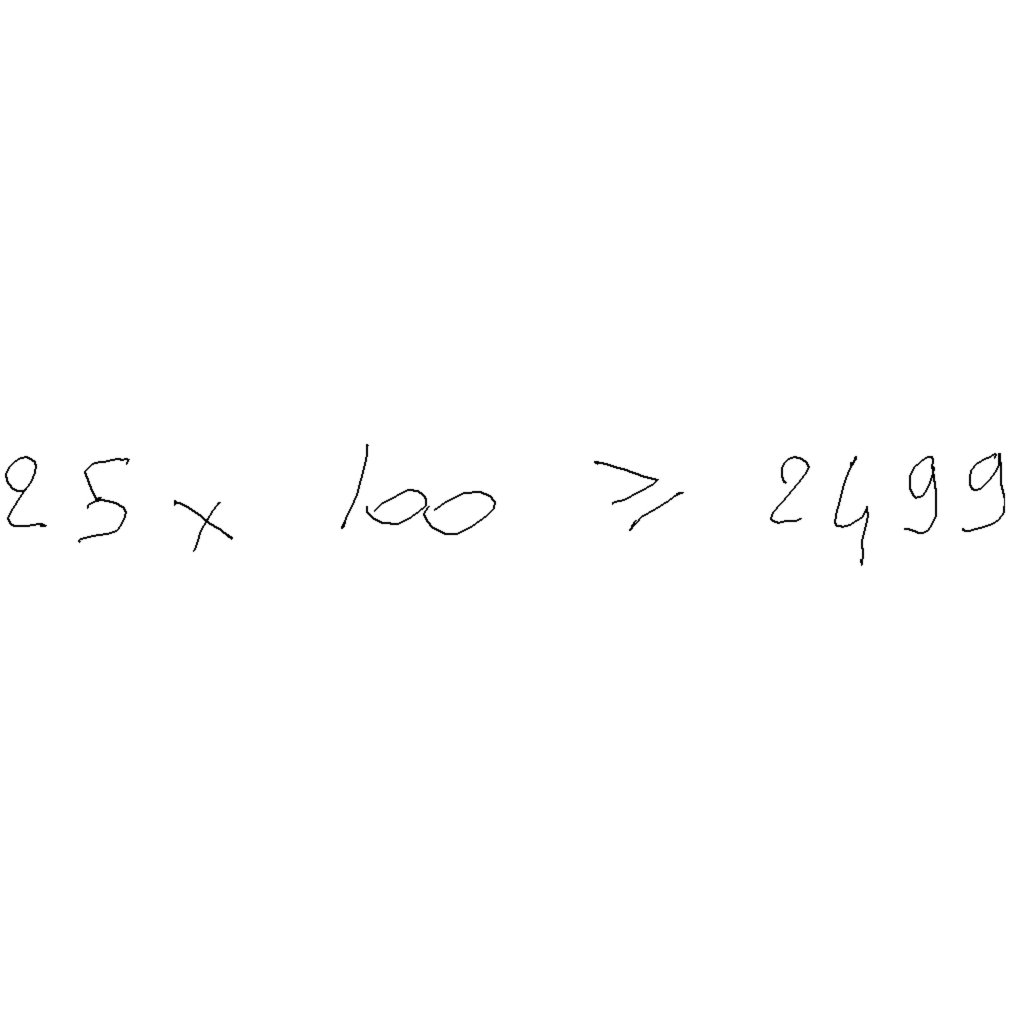 25 × 100 ⩾ 2499